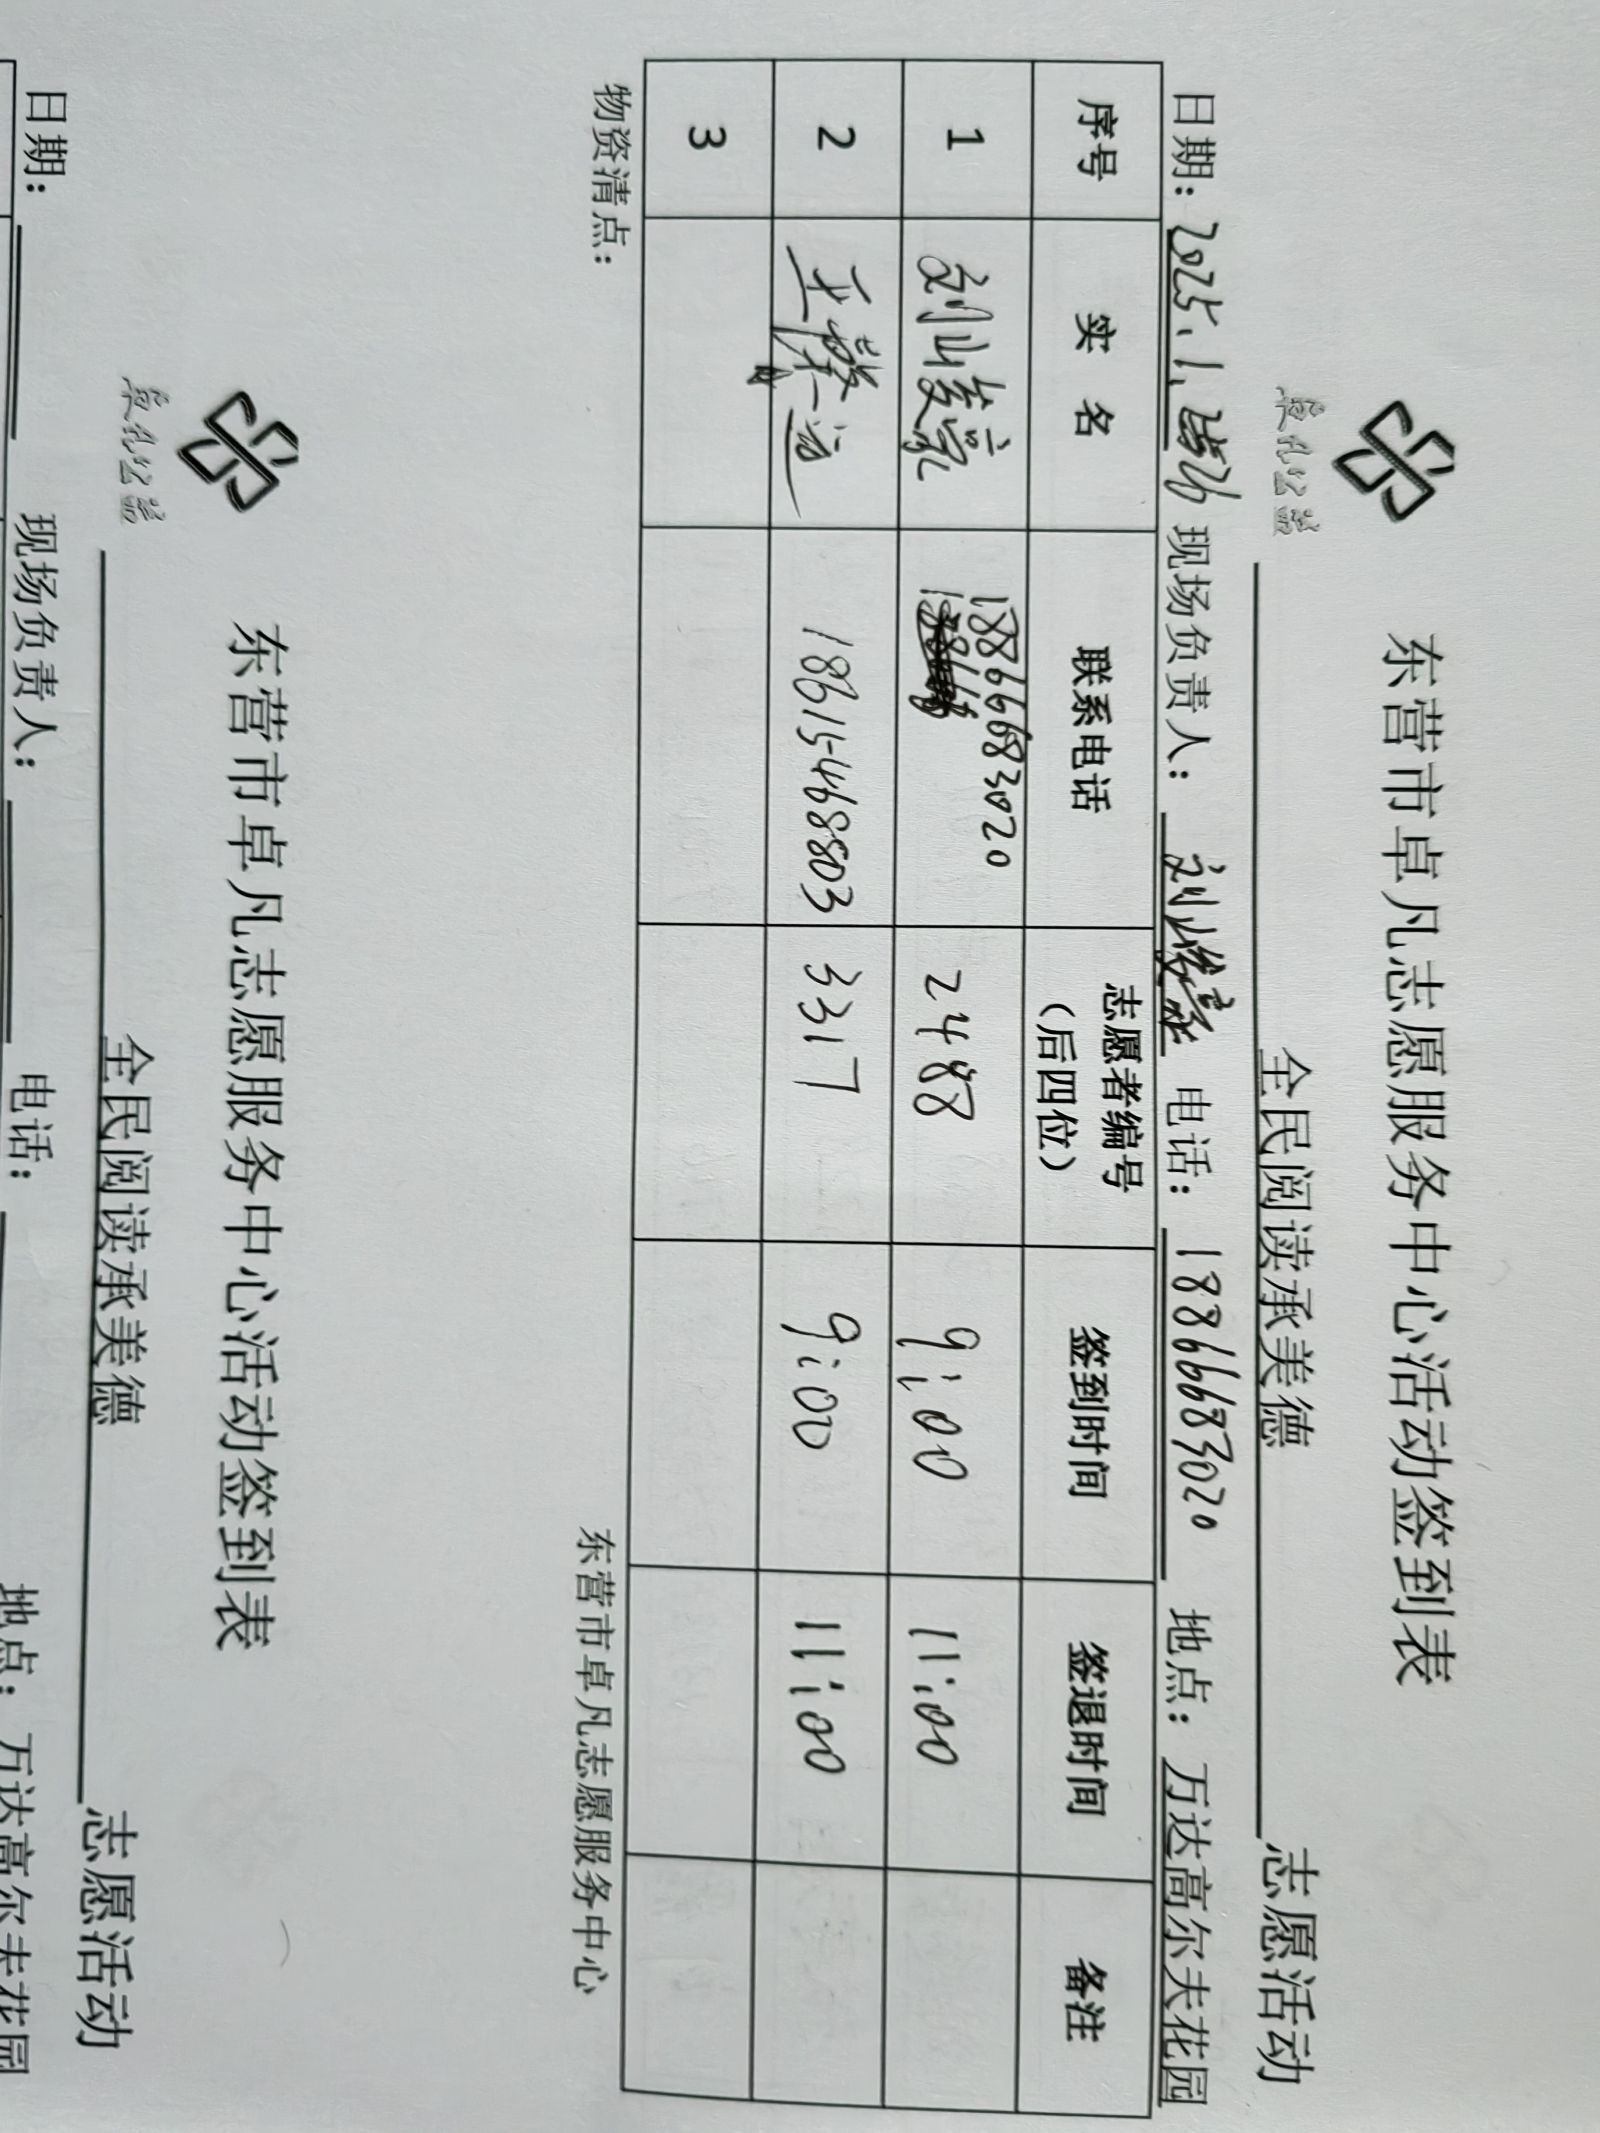 卓凡公益
东营市卓凡志愿服务中心活动签到表
全民阅读承美德 志愿活动
日期： 2025.1. 现场负责人： 刘峻豪 电话： 18866683020 地点： 万达高尔夫花园
序号 实 名 联系电话 志愿者编号 签到时间 签退时间 备注
（后四位）
1 刘峻豪 18866683020 2488 9:00 11:00
2 王 18615468803 3317 9:00 11:00
3
物资清点： 东营市卓凡志愿服务中心
卓凡公益
东营市卓凡志愿服务中心活动签到表
全民阅读承美德 志愿活动
日期： 现场负责人： 电话： 地点： 万达高尔夫花园